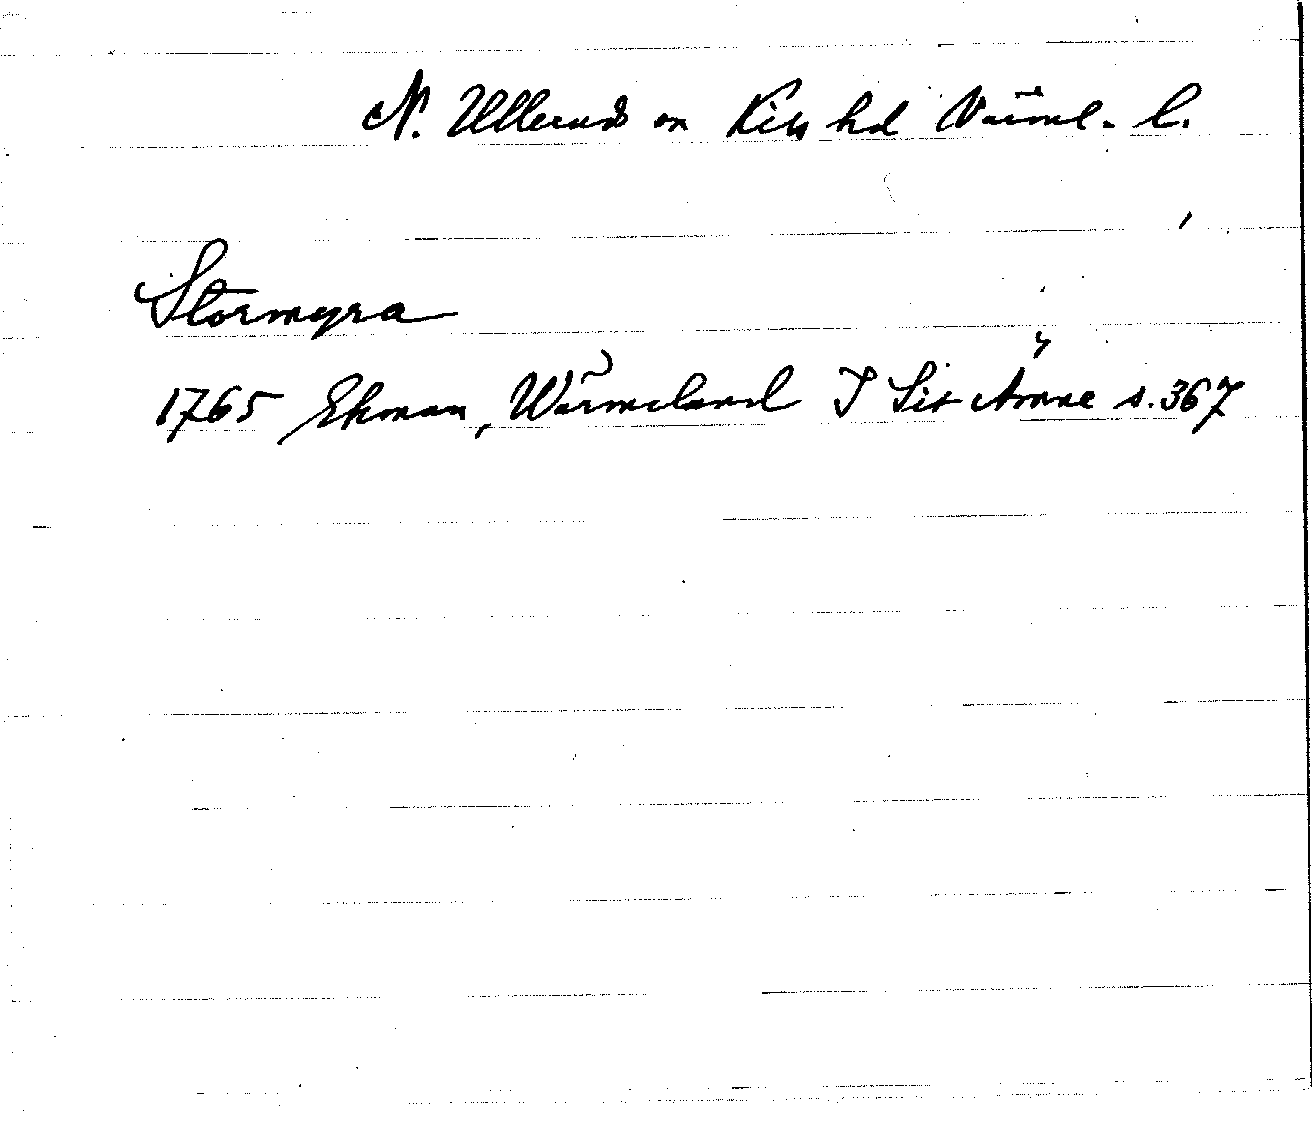 N. Ullerud sn Kils hd Värml. l.
Stormyra
1765 Ekman, Wärmeland I Sit Ämne s. 367